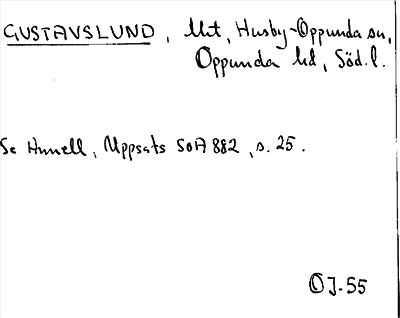 GUSTAVSLUND, Utt, Husby-Oppunda sn,
Oppunda hd, Söd. l.
Se Hunell, Uppsats SOA 882, s. 25.
OJ-55